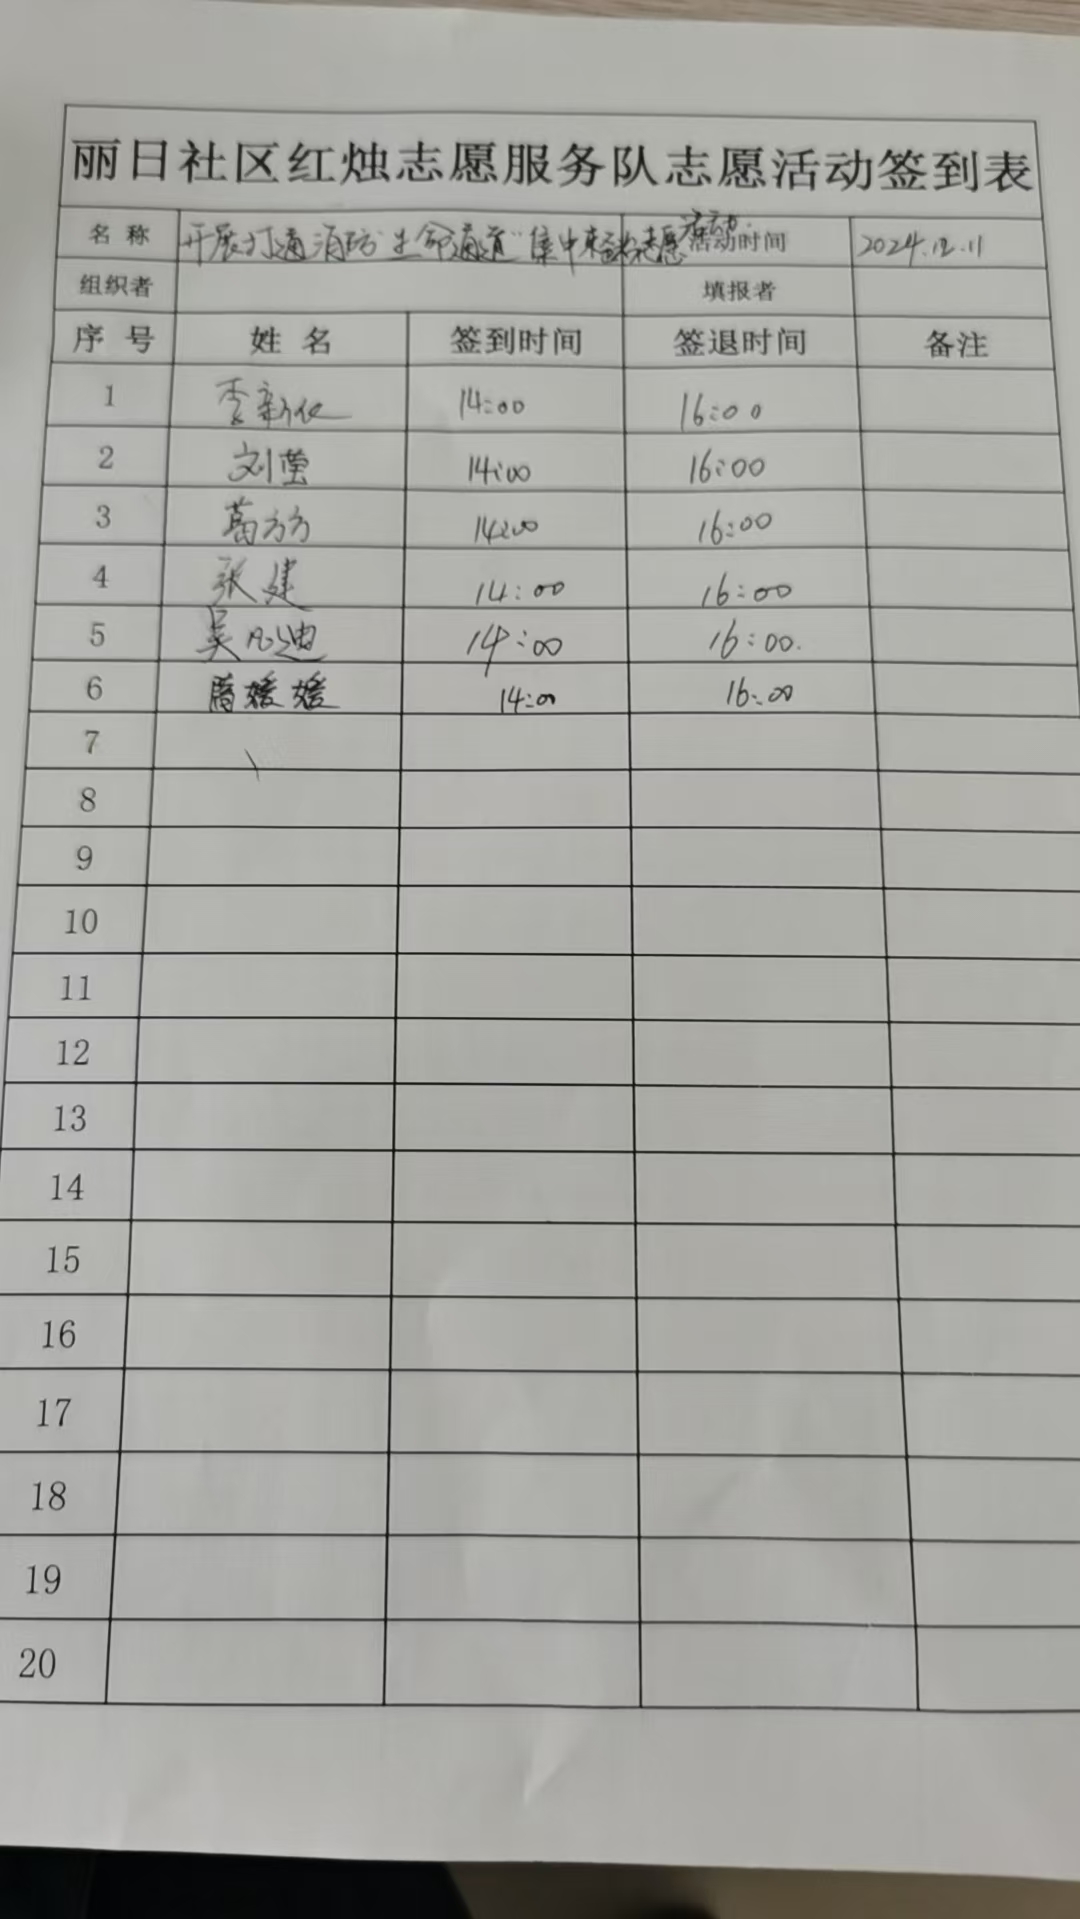 丽日社区红烛志愿服务队志愿活动签到表
名 称 开展打通消防"生命通道"集中 志愿活动. 活动时间 2024.12.11
组织者 填报者
序 号 姓 名 签到时间 签退时间 备注
1 李新 14:00 16:00
2 刘莹 14:00 16:00
3 葛方方 14:00 16:00
4 张建 14:00 16:00
5 吴凡迪 14:00 16:00.
6 媛媛 14:00 16:00
7
8
9
10
11
12
13
14
15
16
17
18
19
20